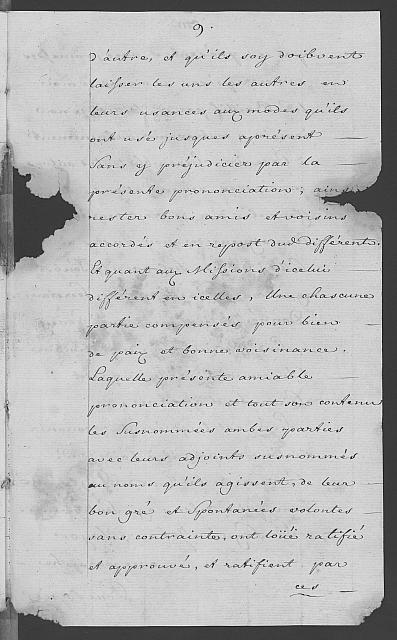 9.
d'autre, et qu'ils soy doibvent
laisser les uns les autres en
leurs usances aux modes qu'ils
ont usé jusques aprésent —
Sans y préjudicier par la —
présente prononciation; ains
rester bons amis et voisins
accordés et en repost dud. différent.
Et quant aux Missions d'icelui —
différent en icelles, Une chascune
partie compensés pour bien —
de paix et bonne voisinance.
Laquelle présente amiable —
prononciation et tout son contenu
les Susnommées ambes parties
avec leurs adjoints susnommés
au noms qu'ils agissent, de leur —
bon gré et Spontanées volontes —
sans contrainte, ont loüé ratifié
et approuvé, et ratifient par
ces —